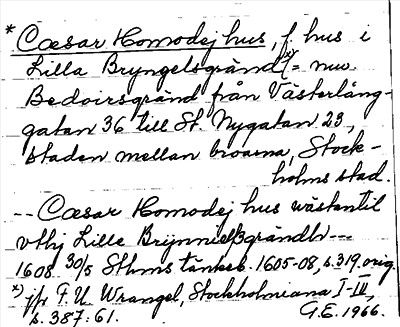 * Cæsar Homodej hus, f. hus i
Lilla Bryngelsgränd *) (= nuv.
Bedoirsgränd från Västerlång-
gatan 36 till St. Nygatan 23,
staden mellan broarna, Stock-
holms stad.
-- Cæsar Homodej hus wästentil
vthj Lille Brÿnnielßgrändh---
1608 30/5 Sthms tänkeb. 1605-08, s. 319. orig.
*) jfr F. U. Wrangel, Stockholmiana I-III,
s. 387: 61. G.E. 1966.